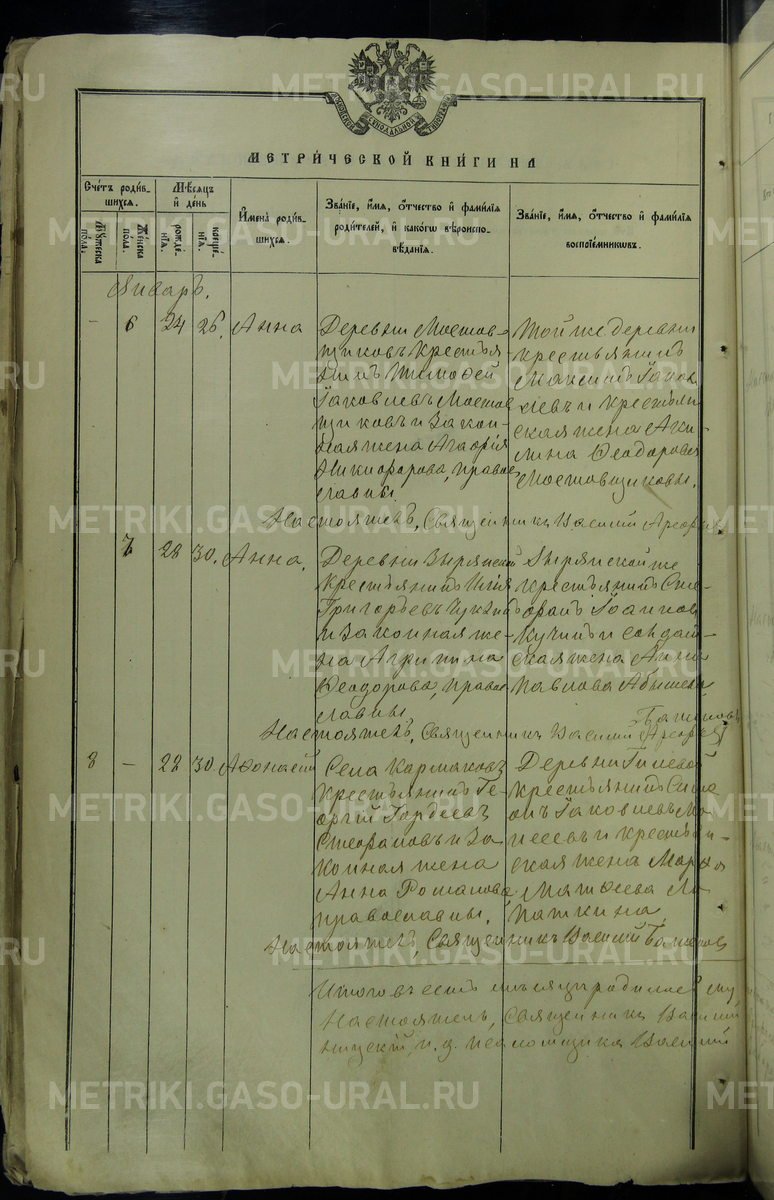 МЕТРИ́ЧЕСКОЙ КНИ́ГИ НА
Сче́тъ роди́в-
шихся.
Мѣ́сяцъ
и̑ де́нь
И̑мена̀ роди́в-
шихся.
Зва́нїе, и̑́мя, ѻ҆́тчество и̑ фамѝлїя
роди́телей, и̑ како́гѡ вѣроиспо-
вѣ́данїя.
Зва́нїе, и̑́мя, ѻ҆́тчество и̑ фамѝлїя
воспрїе́мникѡвъ.
Му́жеска по́ла.
Же́нска по́ла.
рожде́-
нїя.
креще́-
нїя.
Январь.
- 6 24 26. Анна
Деревни Мостов-
щиковъ Крестья
нинъ Тимофей
Iаковлевъ Мостов
щиковъ и закон-
ная жена Агафія
Никифорова, право
славны.
Той же деревни
крестьянинъ
Максимъ Iаков
левъ и крестьян
ская жена Аки-
лина Ѳеодорова
Мостовщиковы.
Настоятель, Священникъ Василій
7 28 30. Анна.
Деревни Зырянской
Крестьянинъ Илія
Григорьевъ
и законная же-
на Агрипина
Ѳеодорова, право
славны,
Зырянской же
крестьянинъ Сте
фанъ Іоаннов
и солдат-
ская жена Анна
Павлова
Настоятель, Священникъ Василій
8 - 22 30. Аѳонасій
Села Кармаковъ
Крестьянинъ Ге
оргій Гордеевъ
Стефановъ и за
конная жена
Анна Романова
православны.
Деревни Гилевой
крестьянинъ Симе
онъ Iаковлевъ Мо
исеевъ и крестьян-
ская жена Марѳа
Матѳеева Ло
паткина
Настоятель, Священникъ Василій Баженов
Итого въ семъ месяце родилось му
Настоятель, Священникъ Василій
и. д. псаломщика Василій
METRIKI.GASO-URAL.RU